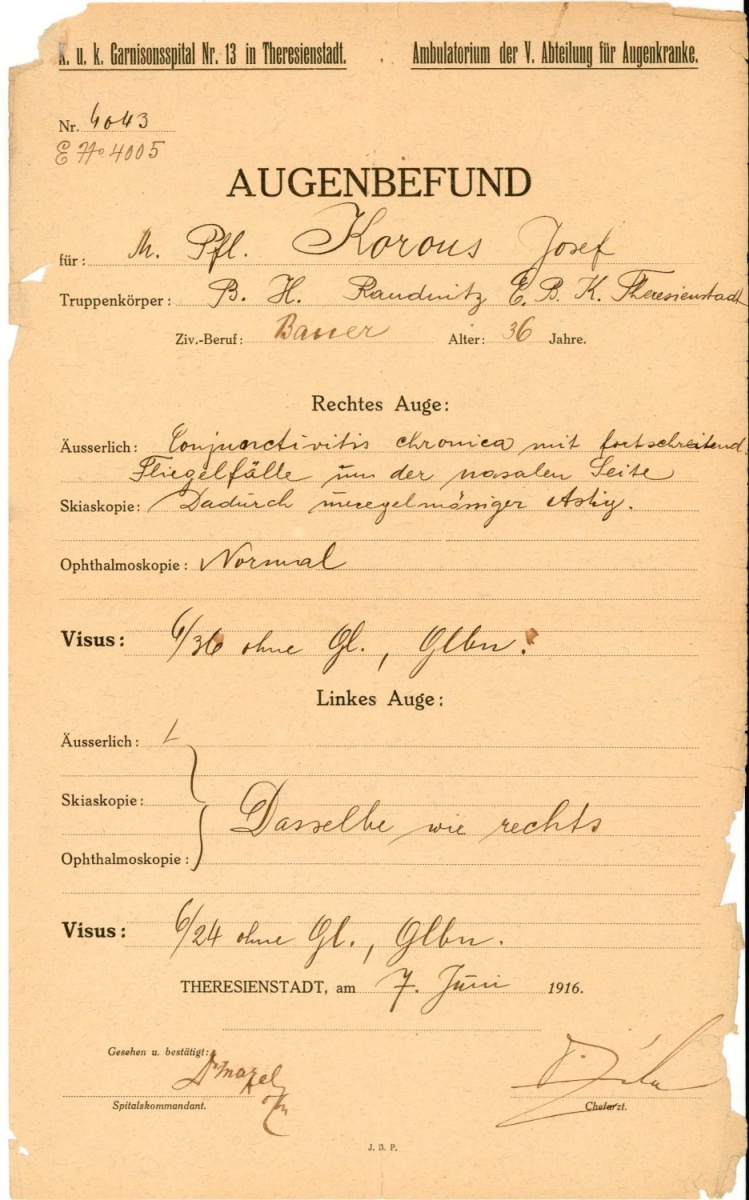 K. u. k. Garnisonsspital Nr. 13 in Theresienstadt. Ambulatorium der V. Abteilung für Augenkranke.
Nr. 4043
E No 4005
AUGENBEFUND
für: M. Pfl. Korous Josef
Truppenkörper: B. H. Raudnitz E. B. K. Theresienstadt
Ziv.-Beruf: Bauer Alter: 36 Jahre.
Rechtes Auge:
Äusserlich: Conjunctivitis chronica mit fortschreitend.
Fliegelfälle um der nasalen Seite
Skiaskopie: Dadurch unregelmässiger Astig.
Ophthalmoskopie: Normal
Visus: 6/36 ohne Gl., Glbn.
Linkes Auge:
Äusserlich:
Skiaskopie:
Dasselbe wie rechts
Ophthalmoskopie:
Visus: 6/24 ohne Gl., Glbn.
THERESIENSTADT, am 7. Juni 1916.
Gesehen u. bestätigt:
Spitalskommandant.
Chefarzt.
J. B. P.